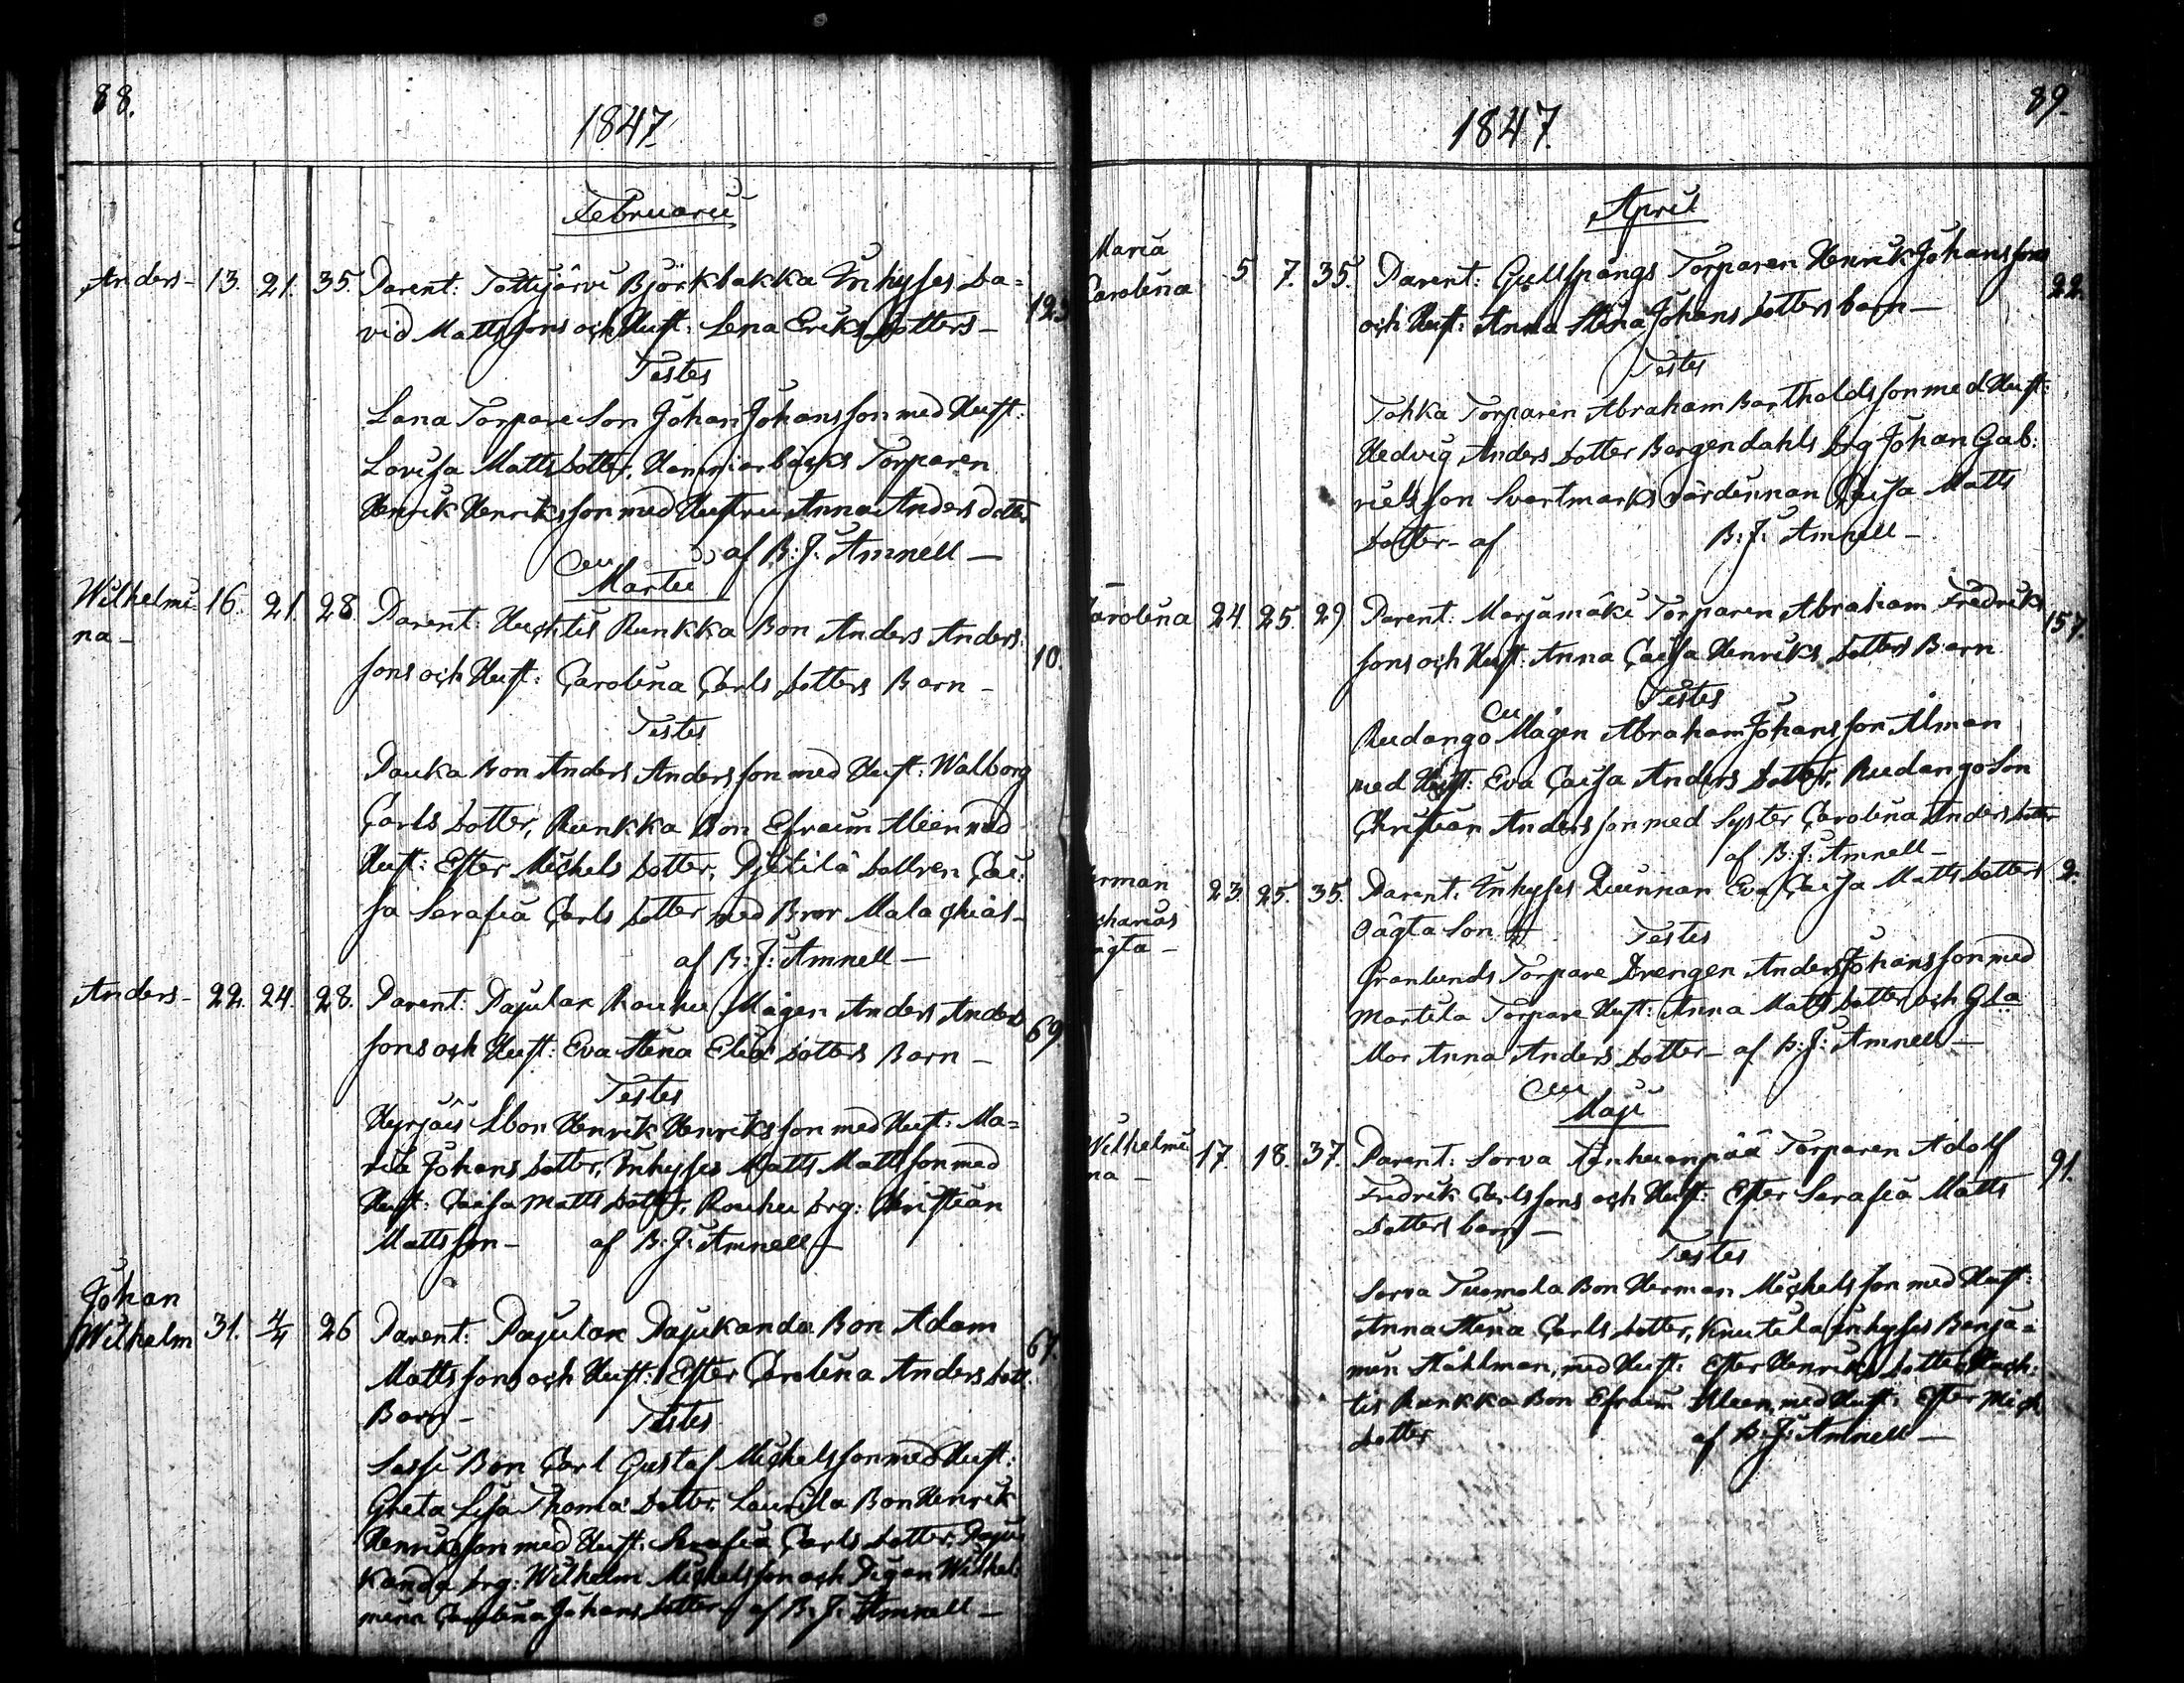 88.
1847.
Februarii
Anders- 13. 21. 35. Parent: Tottijärvi Björkbakka Inhyses Da=
vid Mattssons och Hust: Lena Eriks dotters - 123
Testes
Lana Torpare Son Johan Johansson med Hust:
Lovisa Matts dotter, Torparen
Henrik Henriksson med Hustru Anna Anders dotter
af B: J: Amnell -
Martii
Wilhelmi- 16. 21. 28. Parent: Huhtis Runkka Bon Anders Anders:
na - sons och Hust: Carolina Carls dotters Barn - 10.
Testes
Pauka Bon Anders Andersson med Hust: Walborg
Carls dotter, Runkka Bon Efraim Alleen med
Hust: Ester Michels dotter, Pjetilä dottren Cai:
sa Serafia Carls dotter med Bror Malachias -
af B: J: Amnell -
Anders - 22. 24. 28. Parent: Pajulax Rouhu Mågen Anders Anders
sons och Hust: Eva Stina Eliæ dotters Barn - 69
Testes
Hyrjäis Bon Henrik Henriksson med Hust: Ma=
ria Johans dotter, Inhyses Matts Mattsson med
Hust: Caisa Matts dotter, Rouhu drg: Christian
Mattsson - af B: J: Amnell -
Johan
Wilhelm 31. 4/4 26 Parent: Pajulax Pajukanda Bon Adam 67.
Mattssons och Hust: Ester Carolina Anders dott:
Barn - Testes
Sassi Bon Carl Gustaf Michelsson med Hust:
Greta Lisa Thomæ dotter, Laurila Bon Henrik
Henriksson med Hust: Serafia Carls dotter, Paju
kanda drg: Wilhelm Michelsson och Pigan Wilhel:
mina Carolina Johans dotter - af B: J: Amnell -
89.
1847.
April
Maria
Carolina 5 7. 35. Parent: Gullspångs Torparen Henrik Johanssons 22.
och Hust: Anna Stina Johans dotters barn -
Testes
Tohka Torparen Abraham Bartholdsson med Hust:
Hedvig Anders dotter Bergendahls drg Johan Gab:
rielsson Svartmarks värdinnan Caisa Matts
dotter - af B: J: Amnell -
Carolina 24. 25. 29. Parent: Marjamäki Torparen Abraham Fredriks 157.
sons och Hust: Anna Caisa Henriks dotters Barn
Testes
Rudango Mågen Abraham Johansson Alman
med Hust: Eva Caisa Anders dotter, Rudango Son
Christian Andersson med Syster Carolina Anders dotter
af B: J: Amnell -
erman 23. 25. 35. Parent: Inhyses Quinnan Eva Caisa Matts dotters 2.
charias oägta Son Testes
ägta - Granlunds Torpare Drengen Anders Johansson med
Martila Torpare Hust: Anna Matts dotter och Gla
Mor Anna Anders dotter - af B: J: Amnell -
Maji
Wilhelmi 17. 18. 37. Parent: Sorva Tanhuanpää Torparen Adolf
na - Fredrik Carlssons och Hust: Ester Serafia Matts 91.
dotters barn -
Testes
Sorva Tuomola Bon Herman Michelsson med Hust:
Anna Stina Carls dotter, Knutila Inhyses Benja=
min Ståhlman, med Hust: Ester Henriks dotter Huh:
tis Runkka Bon Efraim Alleen, med Hust: Ester Mich
dotter af B: J: Amnell -